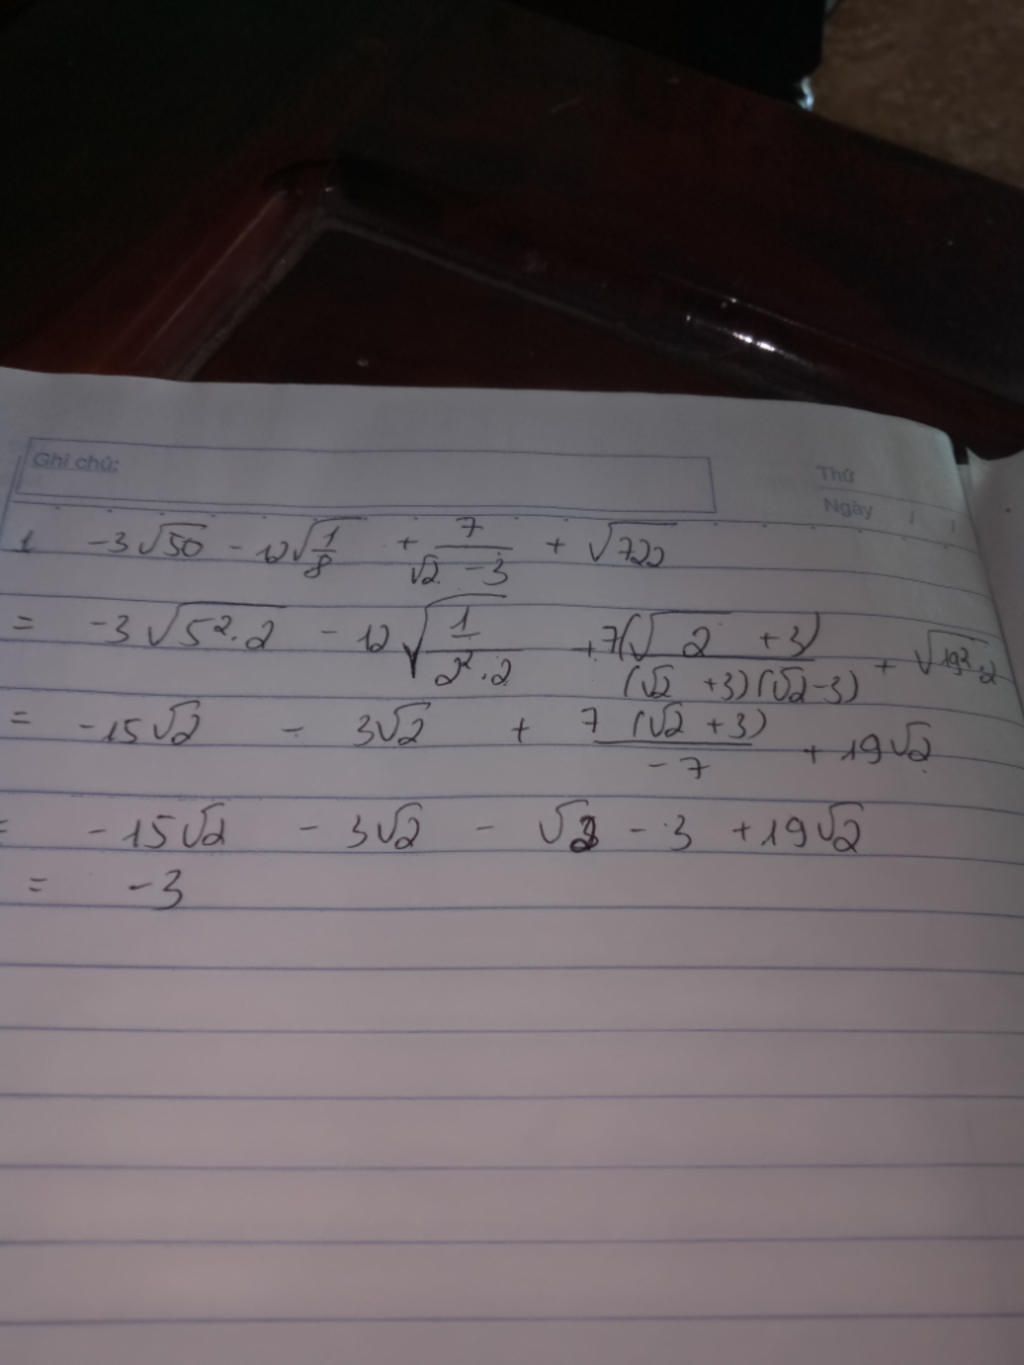 Ghi chú:
Thứ
Ngày / /
1 -3√50 - 12√(1/8) + 7/(√2 - 3) + √722
= -3√(5².2) - 12√(1/(2².2)) + 7(√2 + 3)/((√2 + 3)(√2 - 3)) + √(19².2)
= -15√2 - 3√2 + 7(√2 + 3)/(-7) + 19√2
= -15√2 - 3√2 - √2 - 3 + 19√2
= -3